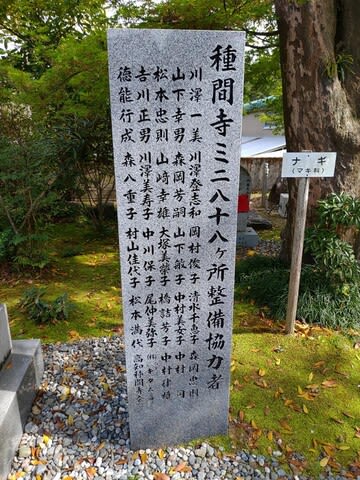 種間寺ミニ八十八ヶ所整備協力者
川澤一美 川澤登志和 岡村俊子 清水千恵子 森岡忠則
山下幸男 森岡芳嗣 山下敏子 中村美女子 中村
松本忠則 山﨑幸雄 大塚美榮子 橋詰芳子 中村律
吉川正男 川澤美寿子 中川保子 尾仲美弥子
德能行成 森八重子 村山佳代子 松本満代
ナギ
(マキ科)